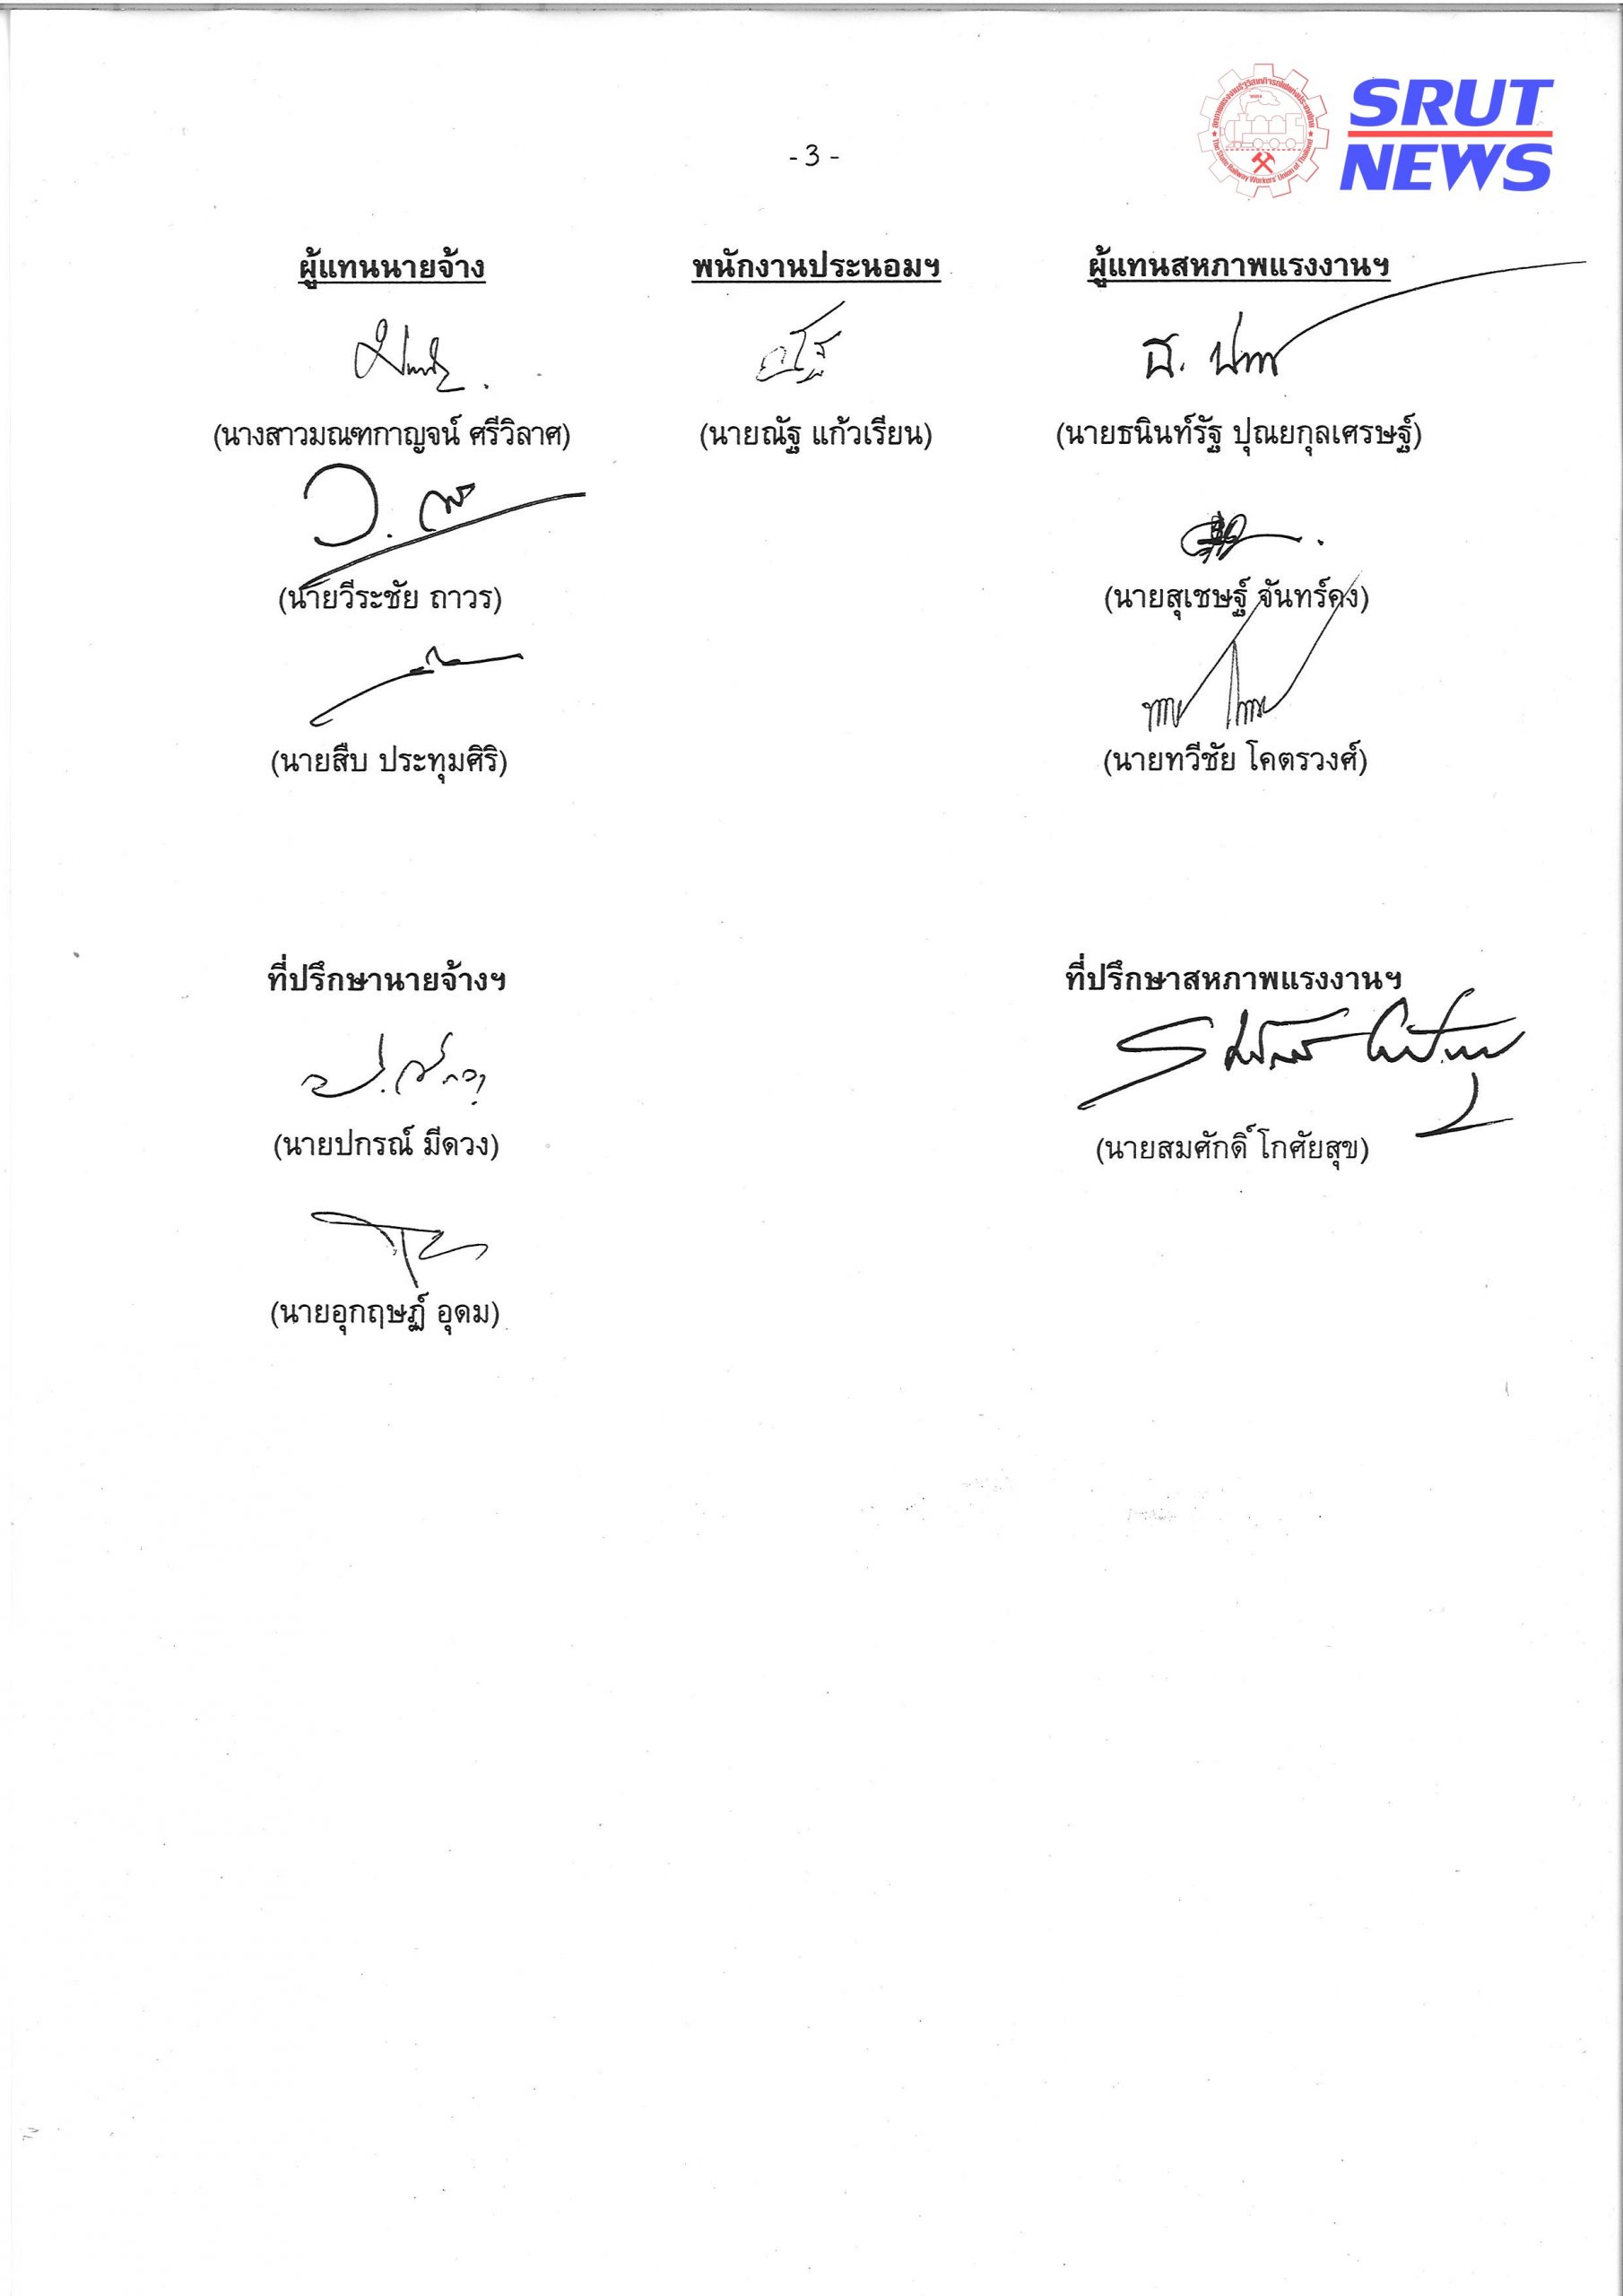 SRUT
NEWS
สหภาพแรงงานรัฐวิสาหกิจรถไฟแห่งประเทศไทย
The State Railway Workers' Union of Thailand
- 3 -
ผู้แทนนายจ้าง พนักงานประนอมฯ ผู้แทนสหภาพแรงงานฯ
(นางสาวมณฑกาญจน์ ศรีวิลาศ) (นายณัฐ แก้วเรียน) (นายธนินท์รัฐ ปุณยกุลเศรษฐ์)
(นายวีระชัย ถาวร) (นายสุเชษฐ์ จันทร์คง)
(นายสืบ ประทุมศิริ) (นายทวีชัย โคตรวงศ์)
ที่ปรึกษานายจ้างฯ ที่ปรึกษาสหภาพแรงงานฯ
(นายปกรณ์ มีดวง) (นายสมศักดิ์ โกศัยสุข)
(นายอุกฤษฏ์ อุดม)